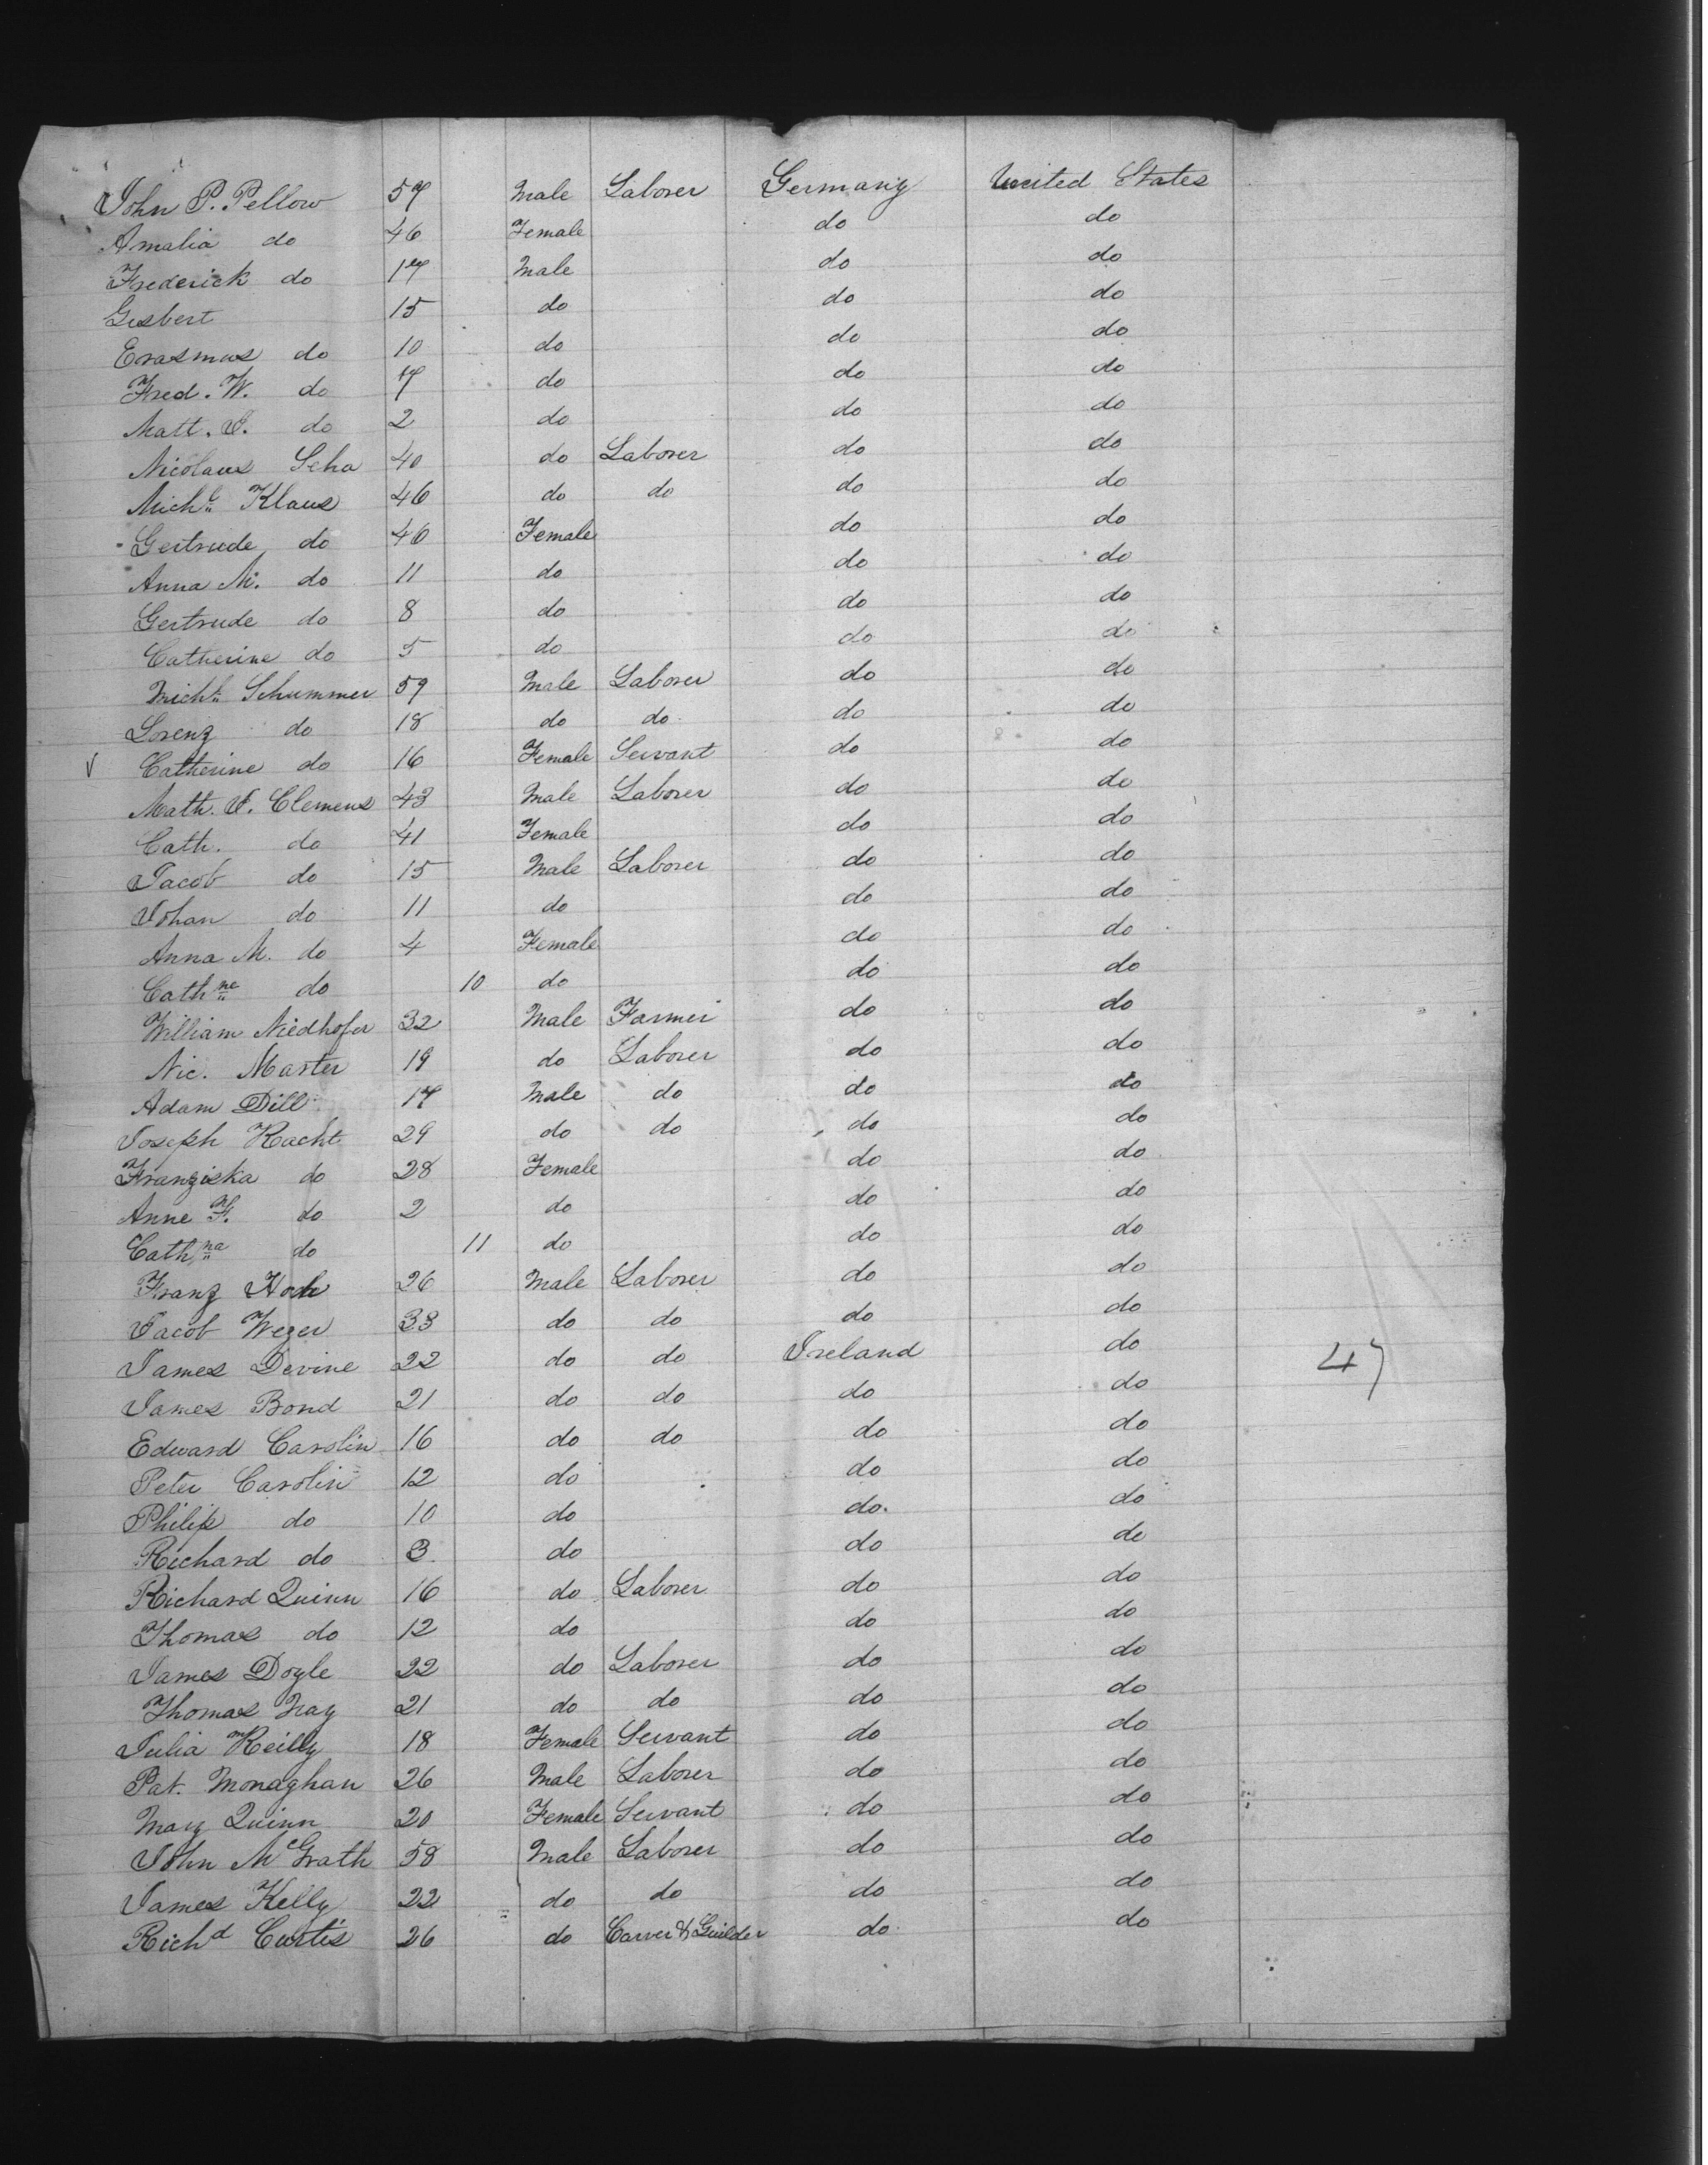 John P. Pellow 57 Male Laborer Germany United States
Amalia do 46 Female do do
Frederick do 17 Male do do
Gisbert 15 do do do
Erasmus do 10 do do do
Fred. W. do 7 do do do
Matt. J. do 2 do do do
Nicolaus Seha 40 do Laborer do do
Michl Klaus 46 do do do do
Gertrude do 40 Female do do
Anna M. do 11 do do do
Gertrude do 8 do do do
Catherine do 5 do do do
Michl Schummer 59 Male Laborer do do
Lorenz do 18 do do do do
V Catherine do 16 Female Servant do do
Math. J. Clemens 43 Male Laborer do do
Cath. do 41 Female do do
Jacob do 15 Male Laborer do do
Johan do 11 do do do
Anna M. do 4 Female do do
Cathne do 10 do do do
William Niedhofer 32 Male Farmer do do
Nic. Master 19 do Laborer do do
Adam Dill 17 Male do do do
Joseph Racht 29 do do do do
Franziska do 28 Female do do
Anne F. do 2 do do do
Cathna do 11 do do do
Franz Hoch 26 Male Laborer do do
Jacob Wezer 33 do do do do
James Devine 22 do do Ireland do 47
James Bond 21 do do do do
Edward Carolin 16 do do do do
Peter Carolin 12 do do do
Philip do 10 do do. do
Richard do 3 do do do
Richard Quinn 16 do Laborer do do
Thomas do 12 do do do
James Doyle 22 do Laborer do do
Thomas 21 do do do do
Julia Reilly 18 Female Servant do do
Pat. Monaghan 26 Male Laborer do do
Mary Quinn 20 Female Servant do do
John McGrath 58 Male Laborer do do
James Kelly 22 do do do do
Richd Curtis 26 do Carver & Guilder do do